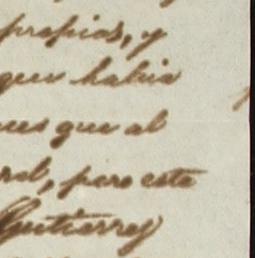 propios, y
que habia
ues que al
ral, pero este
Gutierrez